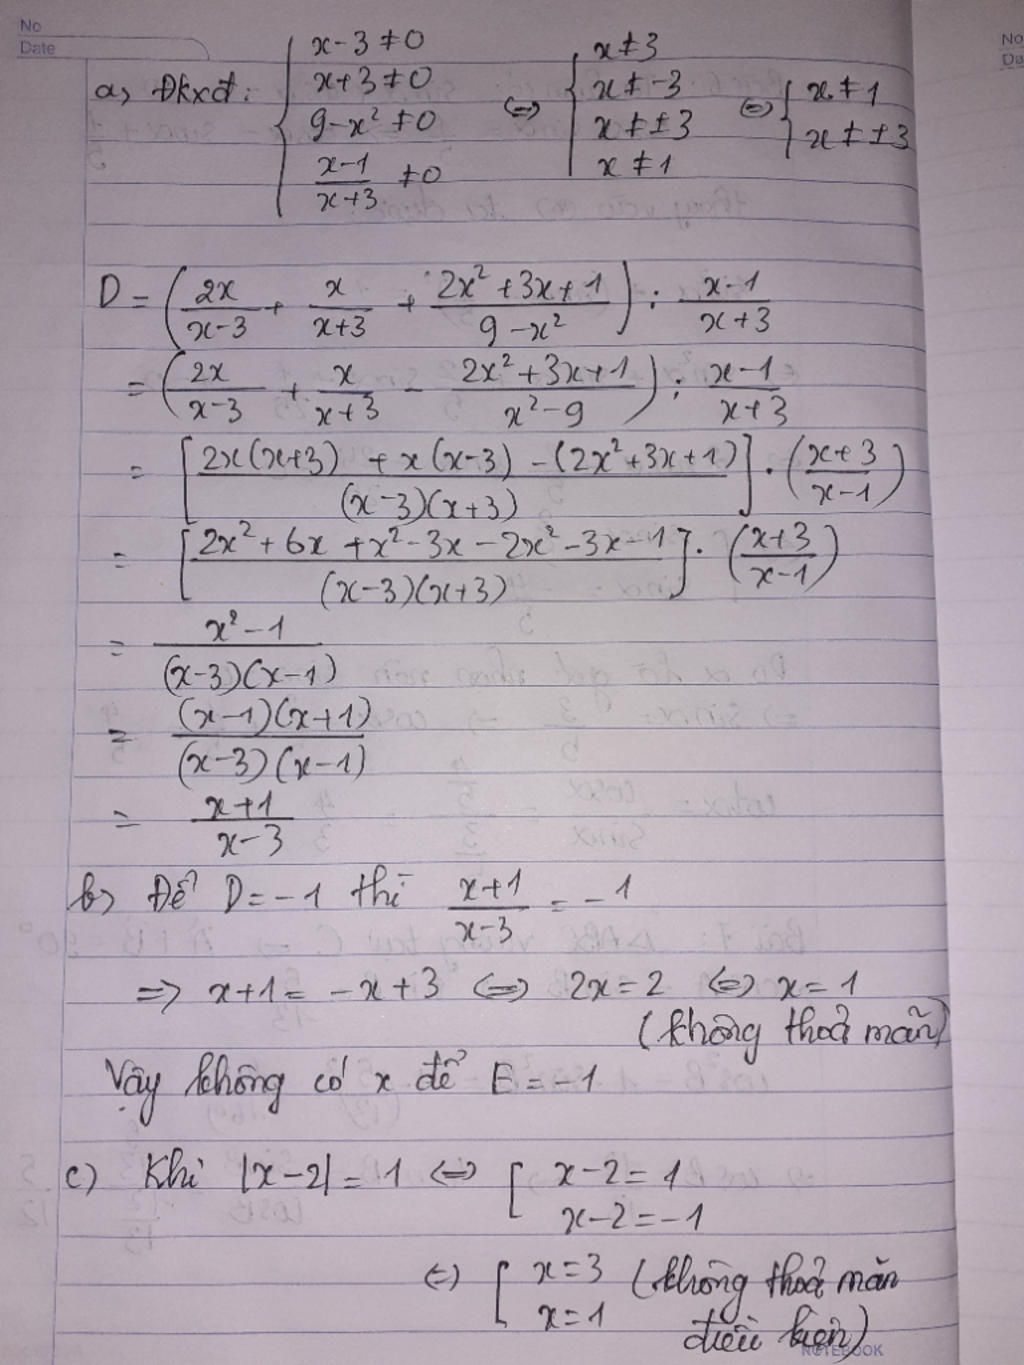 No
Date
No
Da
a, Đkxđ: { x-3 ≠ 0 ; x+3 ≠ 0 ; 9-x² ≠ 0 ; (x-1)/(x+3) ≠ 0 ⇔ { x ≠ 3 ; x ≠ -3 ; x ≠ ±3 ; x ≠ 1 ⇔ { x ≠ 1 ; x ≠ ±3
D = ( 2x/(x-3) + x/(x+3) + (2x²+3x+1)/(9-x²) ) : (x-1)/(x+3)
= ( 2x/(x-3) + x/(x+3) - (2x²+3x+1)/(x²-9) ) : (x-1)/(x+3)
= [ (2x(x+3) + x(x-3) - (2x²+3x+1))/((x-3)(x+3)) ] . ( (x+3)/(x-1) )
= [ (2x²+6x+x²-3x-2x²-3x-1)/((x-3)(x+3)) ] . ( (x+3)/(x-1) )
= (x²-1)/((x-3)(x-1))
= ((x-1)(x+1))/((x-3)(x-1))
= (x+1)/(x-3)
b, Để D = -1 thì (x+1)/(x-3) = -1
=> x+1 = -x+3 ⇔ 2x = 2 ⇔ x = 1
(không thoả mãn)
Vậy không có x để E = -1
c) Khi |x-2| = 1 ⇔ [ x-2 = 1
x-2 = -1
⇔ [ x = 3 (không thoả mãn
x = 1 điều kiện)
NOTEBOOK